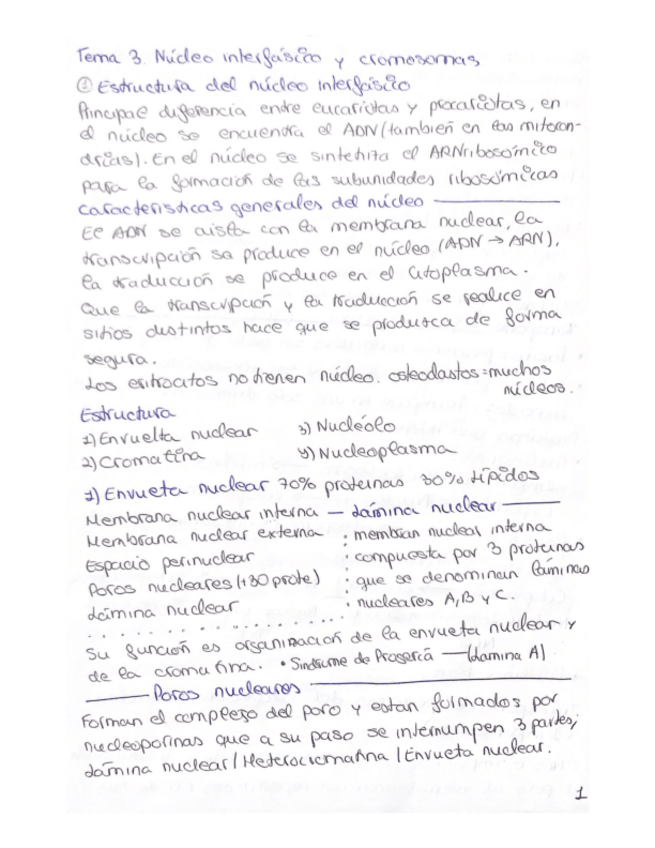 Tema 3. Núcleo interfásico y cromosomas
① Estructura del núcleo interfásico
Principal diferencia entre eucariotas y procariotas, en
el núcleo se encuentra el ADN (también en las mitocon-
drias). En el núcleo se sintetiza el ARN ribosómico
para la formación de las subunidades ribosómicas
características generales del núcleo
El ADN se aisla con la membrana nuclear, la
transcripción se produce en el núcleo (ADN → ARN),
la traducción se produce en el citoplasma.
Que la transcripción y la traducción se realice en
sitios distintos hace que se produzca de forma
segura.
Los eritrocitos no tienen núcleo. osteoclastos = muchos
núcleos.
Estructura
1) Envuelta nuclear 3) Nucléolo
2) Cromatina 4) Nucleoplasma
1) Envueta nuclear 70% proteinas 30% Lípidos
Membrana nuclear interna — Lámina nuclear
Membrana nuclear externa : membran nuclear interna
Espacio perinuclear : compuesta por 3 proteinas
Poros nucleares (+30 prote) : que se denominan láminas
Lámina nuclear : nucleares A, B y C.
Su función es organización de la envueta nuclear y
de la cromatina. • Sindrome de Progeria — (lamina A)
Poros nucleares
Forman el complejo del poro y estan formados por
nucleoporinas que a su paso se interrumpen 3 partes;
Lámina nuclear / Heterocromatina / Envueta nuclear.
1